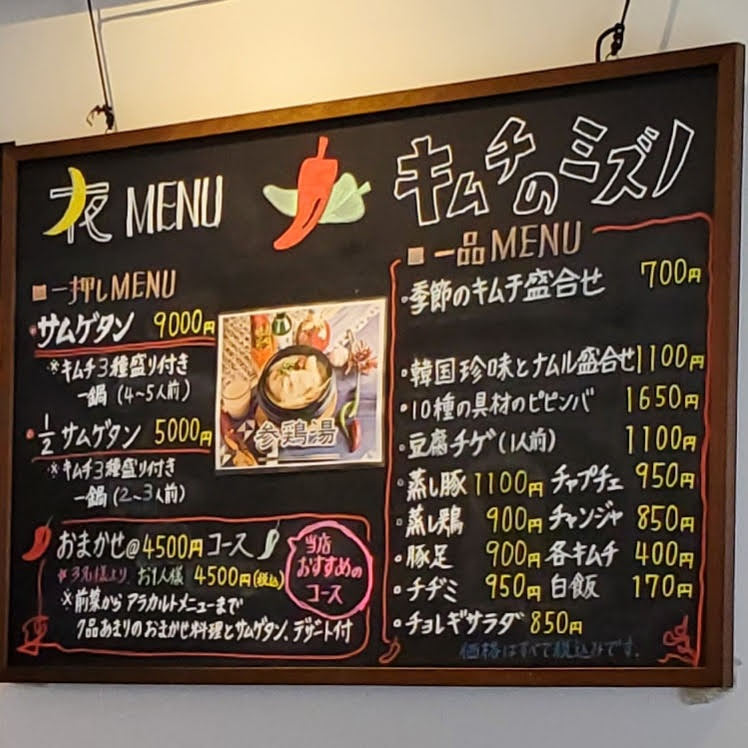 夜 MENU
キムチのミズノ
■一押しMENU
・サムゲタン 9000円
※キムチ3種盛り付き
一鍋(4~5人前)
・1/2サムゲタン 5000円
※キムチ3種盛り付き
一鍋(2~3人前)
参鶏湯
おまかせ@4500円コース
※3名様より お1人様 4500円(税込)
※前菜からアラカルトメニューまで
7品あまりのおまかせ料理とサムゲタン、デザート付
当店
おすすめの
コース
■一品MENU
・季節のキムチ盛合せ 700円
・韓国珍味とナムル盛合せ1100円
・10種の具材のビビンバ 1650円
・豆腐チゲ(1人前) 1100円
・蒸し豚 1100円 チャプチェ 950円
・蒸し鶏 900円 チャンジャ 850円
・豚足 900円 各キムチ 400円
・チヂミ 950円 白飯 170円
・チョレギサラダ 850円
価格はすべて税込みです。